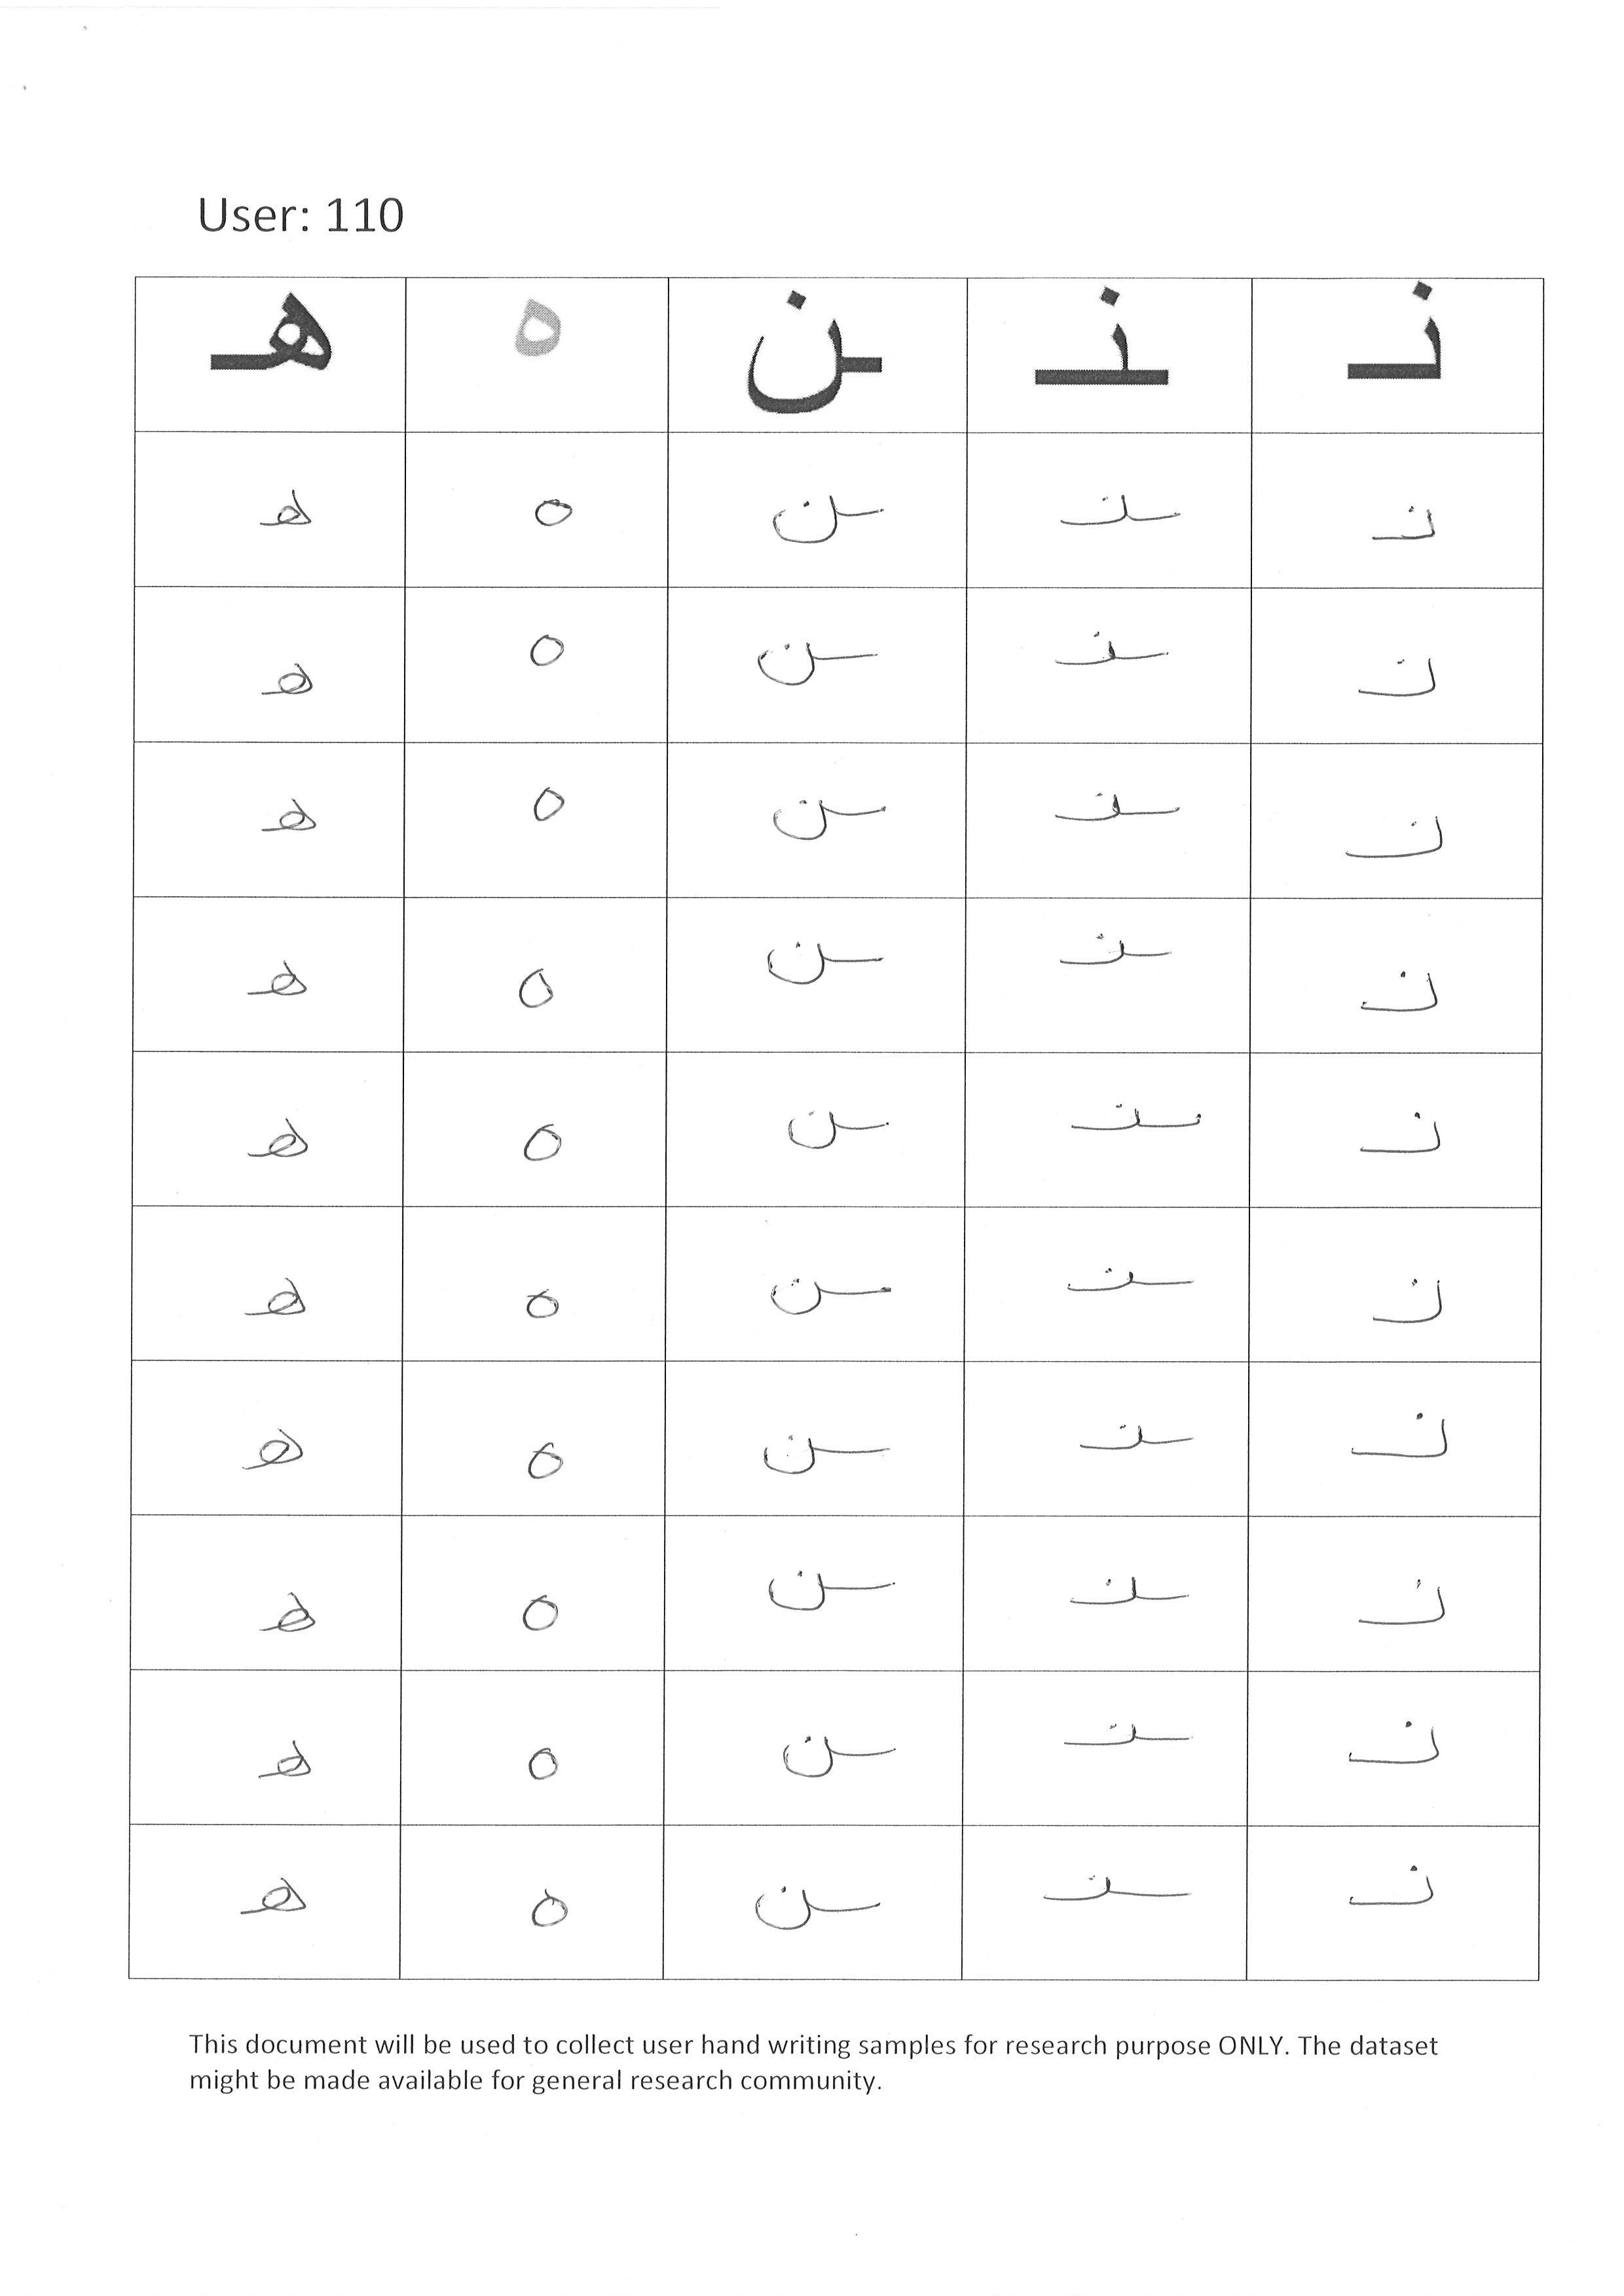 User: 110
نـ ـنـ ـن ه هـ
نـ ـنـ ـن ه هـ
نـ ـنـ ـن ه هـ
نـ ـنـ ـن ه هـ
نـ ـنـ ـن ه هـ
نـ ـنـ ـن ه هـ
نـ ـنـ ـن ه هـ
نـ ـنـ ـن ه هـ
نـ ـنـ ـن ه هـ
نـ ـنـ ـن ه هـ
نـ ـنـ ـن ه هـ
This document will be used to collect user hand writing samples for research purpose ONLY. The dataset
might be made available for general research community.